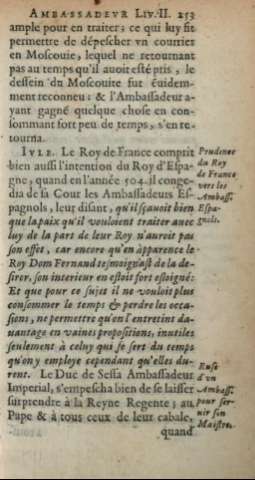 AMBASSADEVR LIV. II. 253
ample pour en traiter; ce qui luy fit
permettre de dépescher vn courrier
en Moscouie, lequel ne retournant
pas au temps qu'il auoit esté pris, le
dessein du Moscouite fut éuidem-
ment reconneu: & l'Ambassadeur a-
yant gagné quelque chose en con-
sommant fort peu de temps, s'en re-
tourna.
IVLE. Le Roy de France comprit
bien aussi l'intention du Roy d'Espa-
gne, quand en l'année 504. il conge-
dia de sa Cour les Ambassadeurs Es-
pagnols, leur disant, qu'il sçauoit bien
que la paix qu'il vouloient traiter auec
luy de la part de leur Roy n'auroit pas
son effet, car encore qu'en apparence le
Roy Dom Fernand tesmoignast de la de-
sirer, son interieur en estoit fort esloigné:
Et que pour ce sujet il ne vouloit plus
consommer le temps & perdre les occa-
sions, ne permettre qu'on l'entretint da-
uantage en vaines propositions, inutiles
seulement à celuy qui se sert du temps
qu'on y employe cependant qu'elles du-
rent. Le Duc de Sessa Ambassadeur
Imperial, s'empescha bien de se laisser
surprendre à la Reyne Regente; au
Pape & à tous ceux de leur cabale,
quand
Prudence
du Roy
de France
vers les
Ambass.
Espa-
gnols.
Ruse
d'vn
Ambass.
pour ser-
uir son
Maistre.